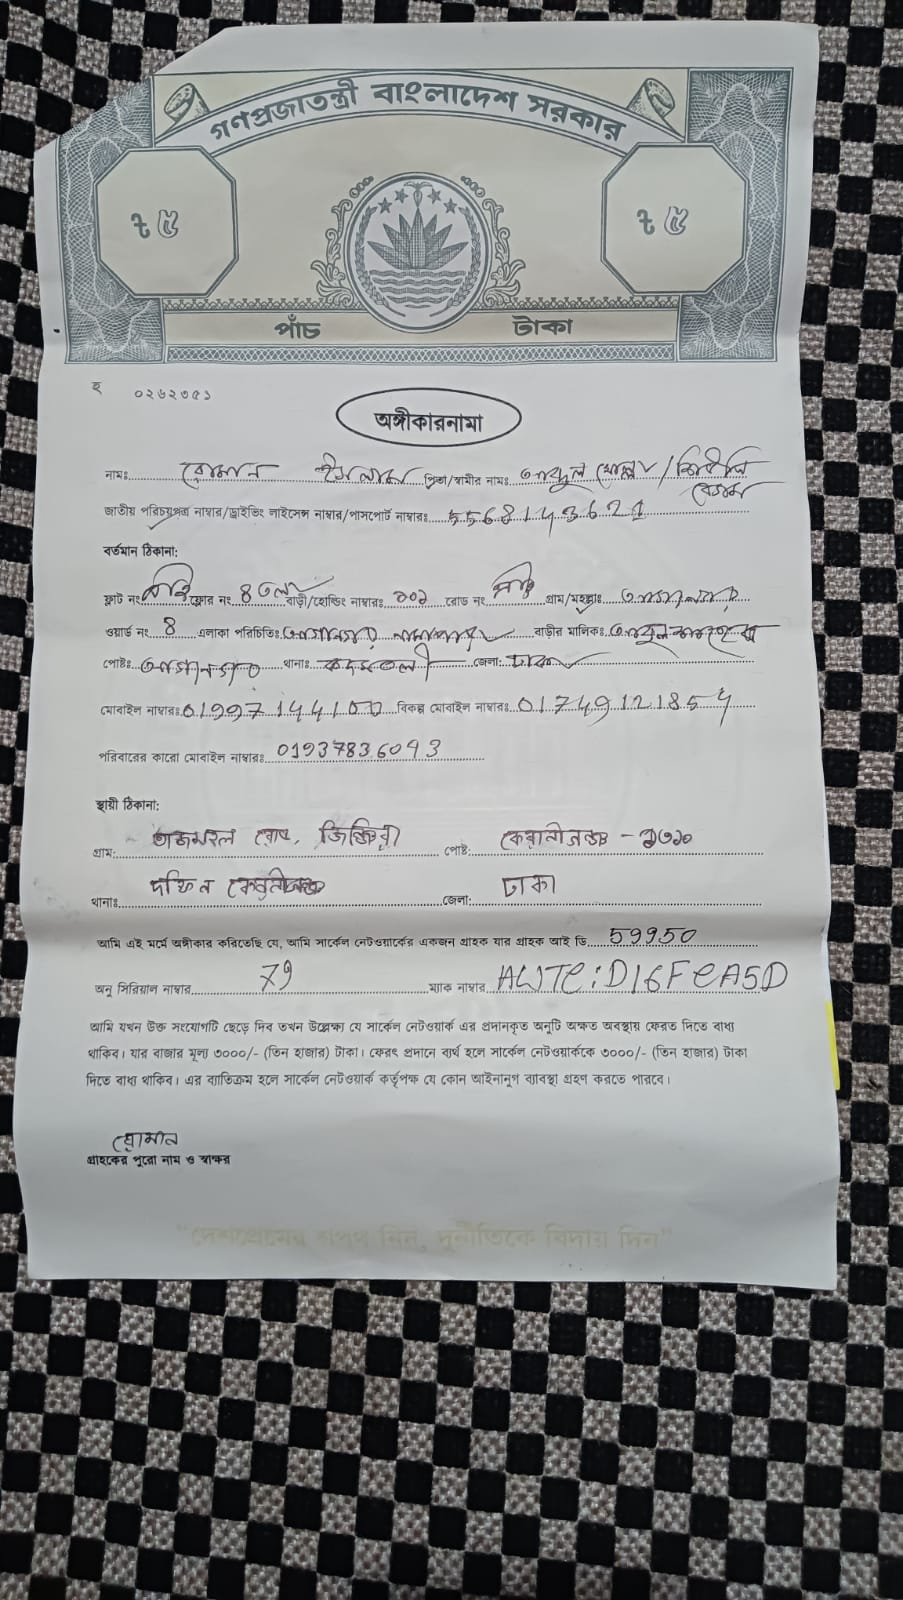 গণপ্রজাতন্ত্রী বাংলাদেশ সরকার
৳ ৫ ৳ ৫
পাঁচ টাকা
হ ০২৬২৩৫১
অঙ্গীকারনামা
নামঃ রোমান ইসলাম পিতা/স্বামীর নামঃ আব্দুল
বেগম
জাতীয় পরিচয়পত্র নাম্বার/ড্রাইভিং লাইসেন্স নাম্বার/পাসপোর্ট নাম্বারঃ 5568143621
বর্তমান ঠিকানা:
ফ্লাট নং ফ্লোর নং 4 তলা বাড়ী/হোল্ডিং নাম্বারঃ ৩০১ রোড নং গ্রাম/মহল্লাঃ
ওয়ার্ড নং 4 এলাকা পরিচিতিঃ বাড়ীর মালিকঃ
পোষ্টঃ থানাঃ কদমতলী জেলা: ঢাকা
মোবাইল নাম্বারঃ 01997144100 বিকল্প মোবাইল নাম্বারঃ
পরিবারের কারো মোবাইল নাম্বারঃ 01937836093
স্থায়ী ঠিকানা:
গ্রাম: তাজমহল রোড, জিঞ্জিরা পোষ্ট: কেরানীগঞ্জ - ১৩১০
থানাঃ দক্ষিন কেরানীগঞ্জ জেলা: ঢাকা
আমি এই মর্মে অঙ্গীকার করিতেছি যে, আমি সার্কেল নেটওয়ার্কের একজন গ্রাহক যার গ্রাহক আই ডি 59950
অনু সিরিয়াল নাম্বার 79 ম্যাক নাম্বার
আমি যখন উক্ত সংযোগটি ছেড়ে দিব তখন উল্লেক্ষ্য যে সার্কেল নেটওয়ার্ক এর প্রদানকৃত অনুটি অক্ষত অবস্থায় ফেরত দিতে বাধ্য
থাকিব। যার বাজার মূল্য ৩০০০/- (তিন হাজার) টাকা। ফেরৎ প্রদানে ব্যর্থ হলে সার্কেল নেটওয়ার্ককে ৩০০০/- (তিন হাজার) টাকা
দিতে বাধ্য থাকিব। এর ব্যতিক্রম হলে সার্কেল নেটওয়ার্ক কর্তৃপক্ষ যে কোন আইনানুগ ব্যবস্থা গ্রহণ করতে পারবে।
রোমান
গ্রাহকের পুরো নাম ও স্বাক্ষর
"দেশপ্রেমের শপথ নিন, দুর্নীতিকে বিদায় দিন"